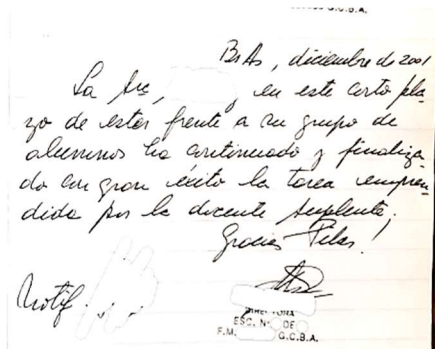 G.C.B.A.
Bs As, diciembre de 2001
La Sra, , en este corto pla-
zo de estar frente a un grupo de
alumnos ha continuado y finaliza-
do con gran éxito la tarea empren-
dida por la docente suplente,
Gracias Pilar!
Notif.
DIRECTORA
ESC. N° DE
F.M. G.C.B.A.